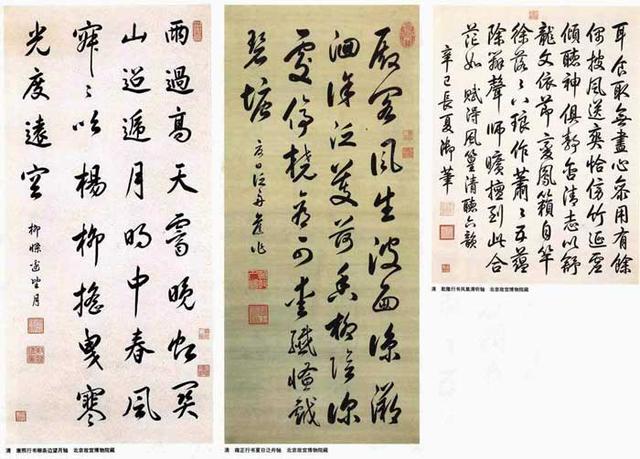 雨過高天霽晚虹關
山迢遞月明中春風
寂〻吹楊柳搖曳寒
光度遠空
柳條邊望月
清 康熙行书柳条边望月轴 北京故宫博物院藏
殿閣風生波面涼溯
洄徐泛芰荷香柳陰深
處停橈看可愛纖鯈戲
碧塘
夏日泛舟舊作
清 雍正行书夏日泛舟轴 北京故宫博物院藏
耳食取無盡心齋用有餘
偶披風送爽恰傍竹延虛
傾聽神俱靜含清志以舒
龍文依節變鳳籟自竿
徐落〻八琅作蕭〻五蘊
除 聲師曠擅到此合
茫如 賦得風篁清聽六韻
辛巳長夏御筆
清 乾隆行书风篁清听轴 北京故宫博物院藏